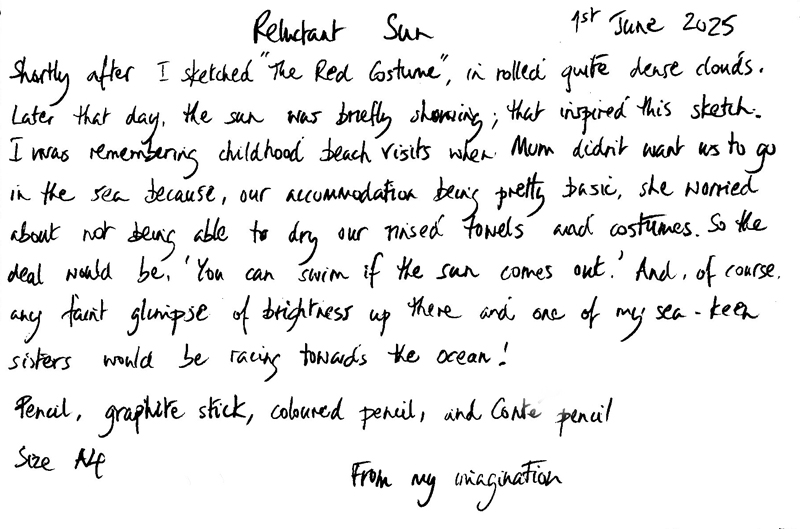 Reluctant Sun 1st June 2025
Shortly after I sketched "The Red Costume", in rolled quite dense clouds.
Later that day, the sun was briefly showing; that inspired this sketch.
I was remembering childhood beach visits when Mum didn't want us to go
in the sea because, our accommodation being pretty basic, she worried
about not being able to dry our rinsed towels and costumes. So the
deal would be, 'You can swim if the sun comes out.' And, of course,
any faint glimpse of brightness up there and one of my sea-keen
sisters would be racing towards the ocean!
Pencil, graphite stick, coloured pencil, and Conté pencil
Size A4
From my imagination